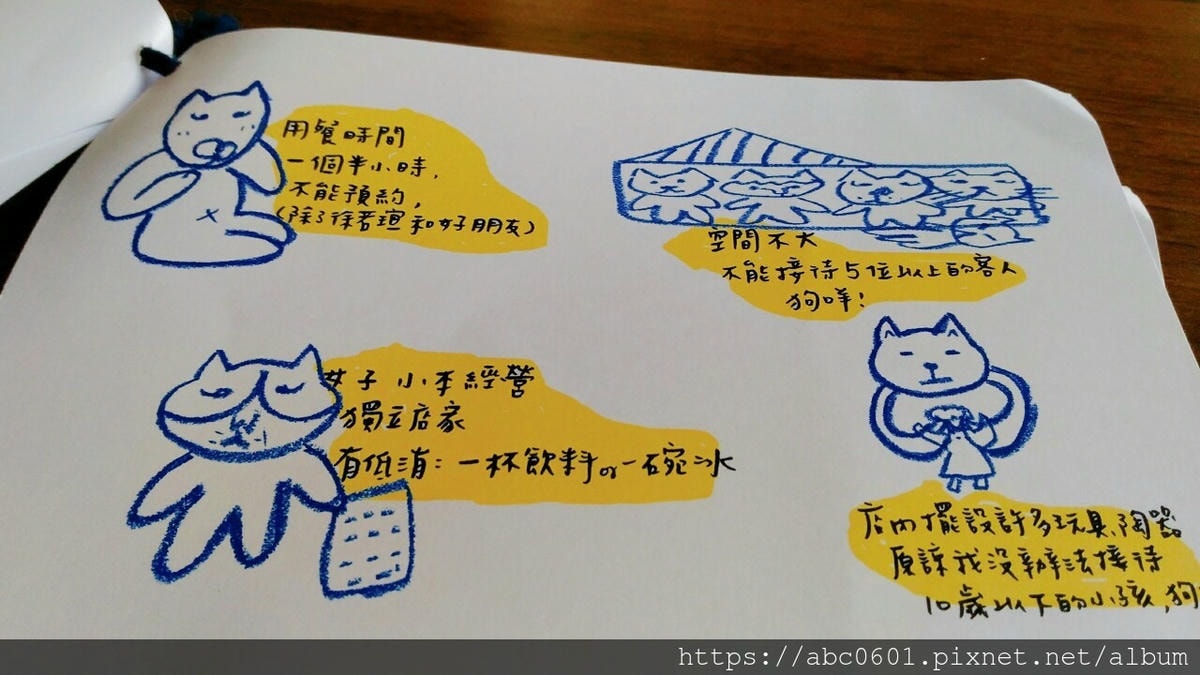 用餐時間
一個半小時,
不能預約,
(除了徐若瑄和好朋友)
空間不大
不能接待5位以上的客人
狗咩!
女子小本經營
獨立店家
有低消:一杯飲料or一碗冰
店內擺設許多玩具、陶器
原諒我沒辦法接待
10歲以下的小孩,狗
https://abc0601.pixnet.net/album